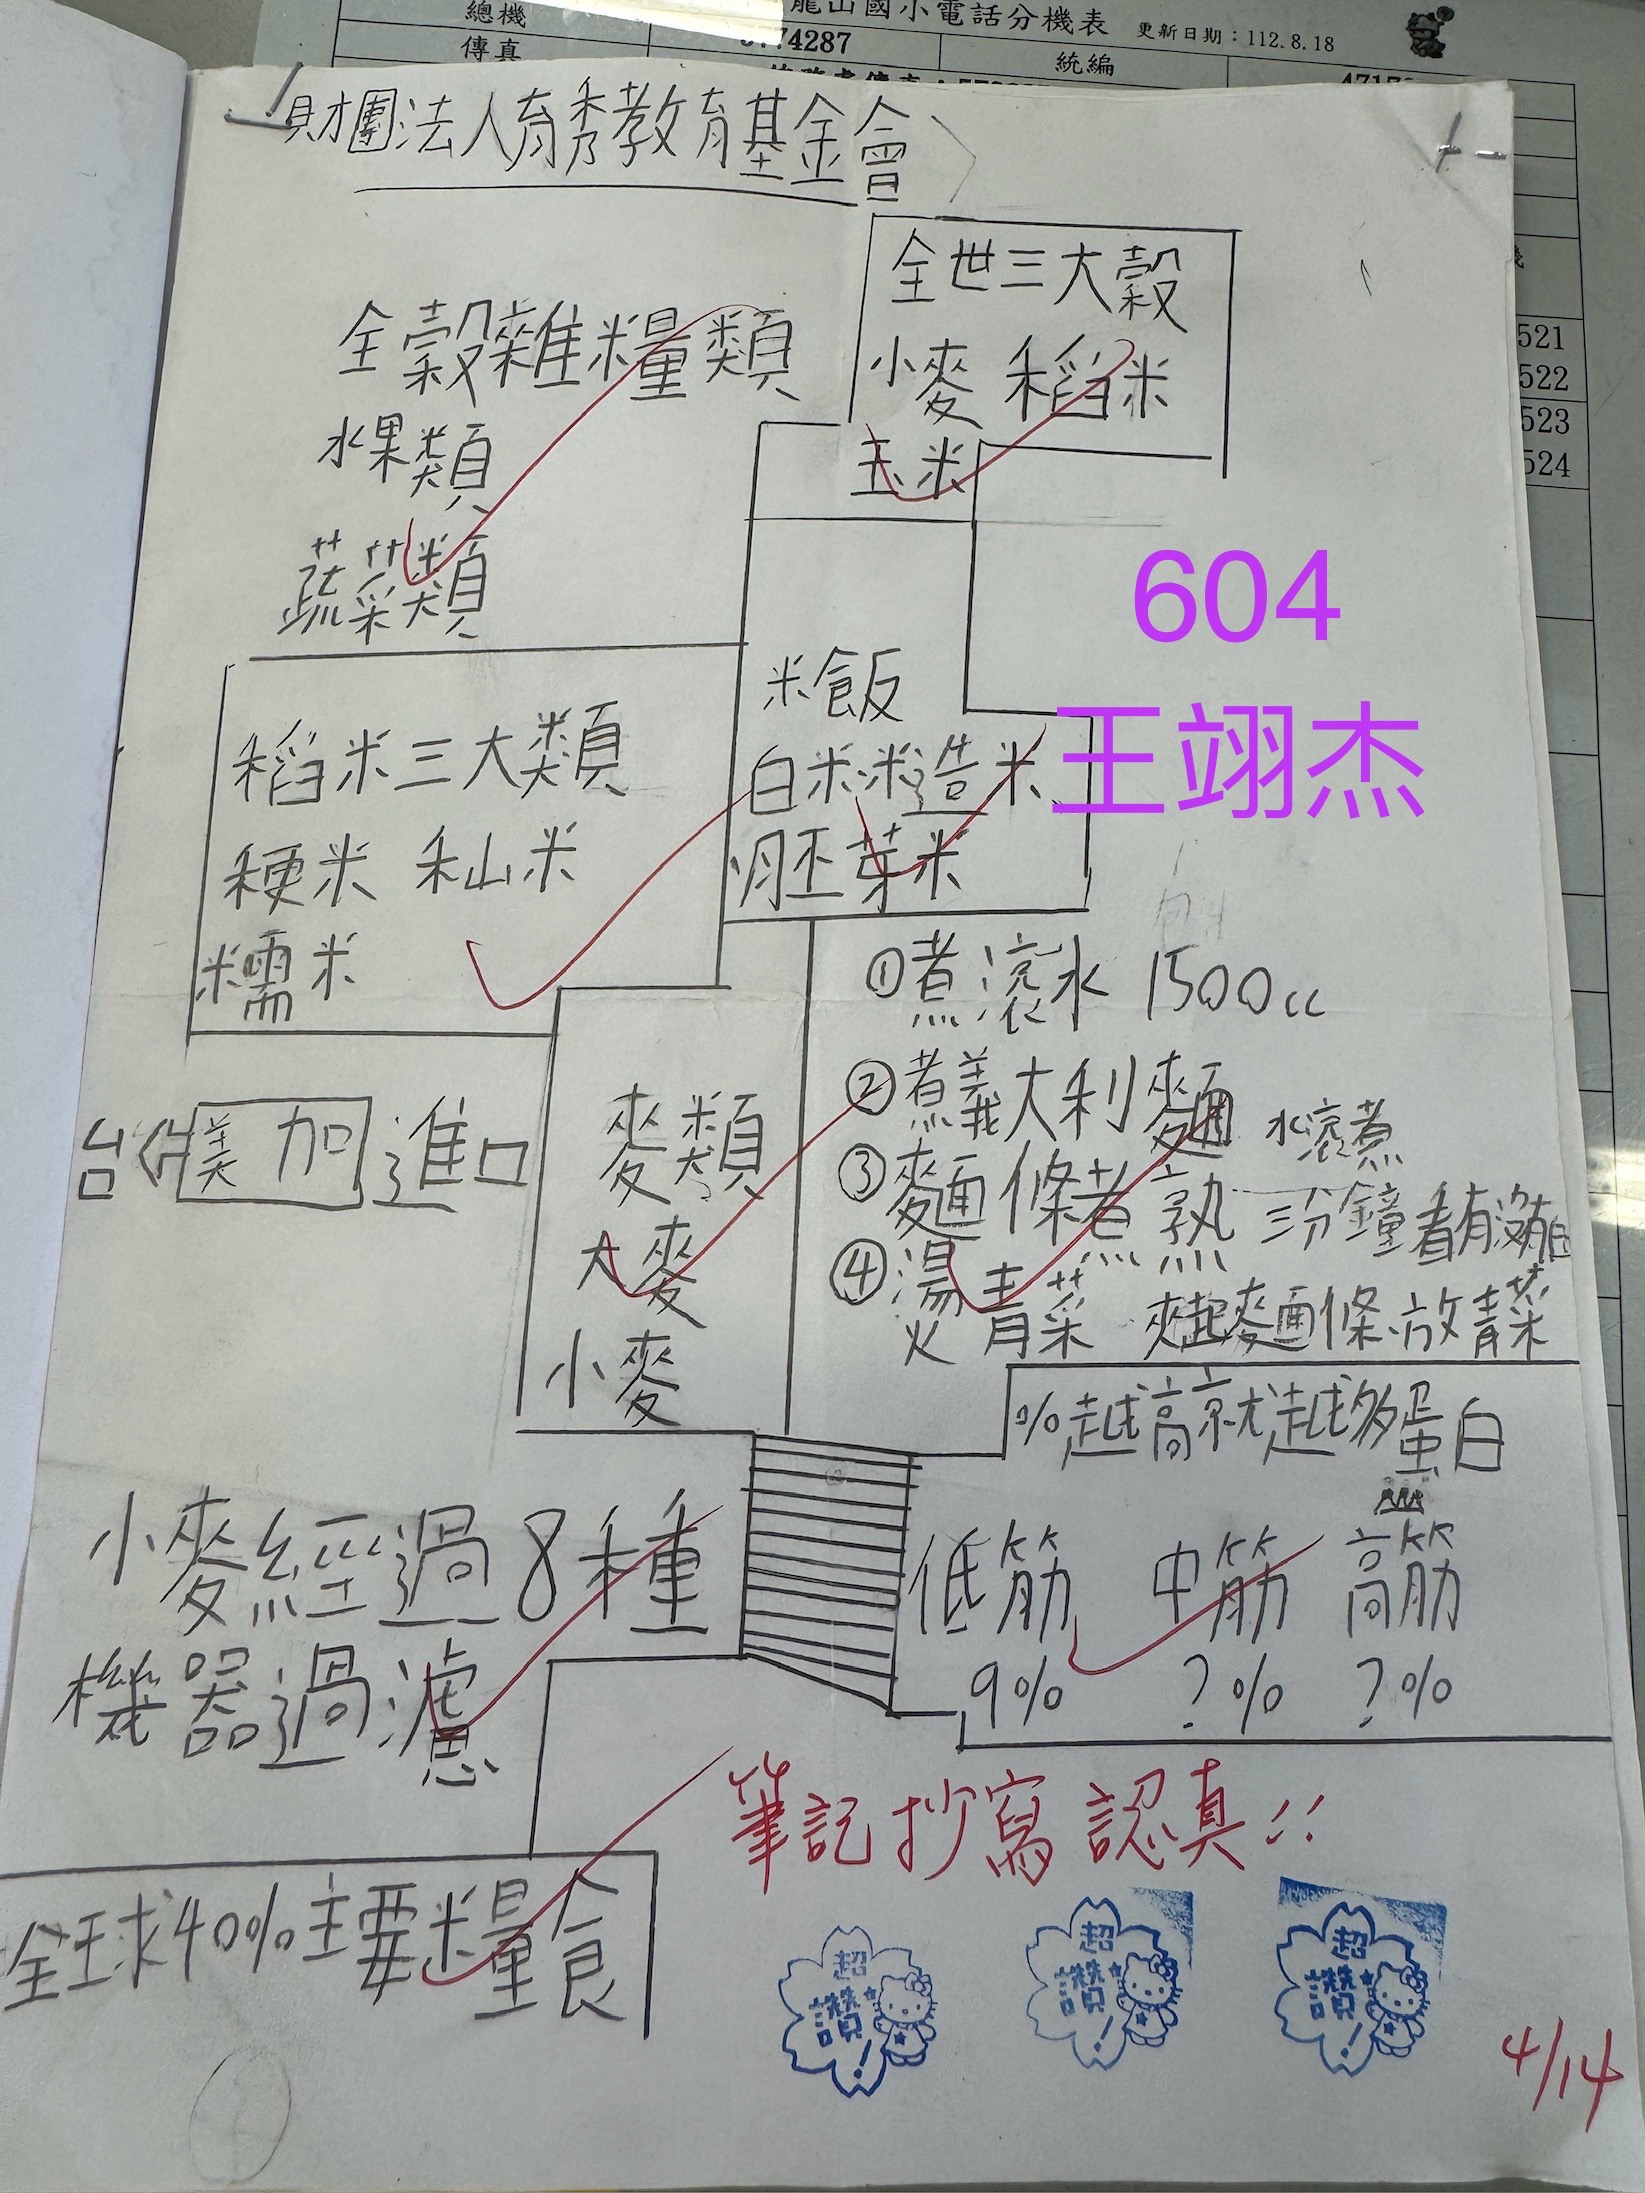 總機
龍山國小電話分機表 更新日期：112.8.18
傳真
5774287
統編
財團法人育秀教育基金會
全世三大穀
小麥 稻米
玉米
全穀雜糧類
水果類
蔬菜類
521
522
523
524
604
王翊杰
米飯
白米 糙米
胚芽米
稻米三大類
粳米 秈米
糯米
①煮滾水 1500cc
②煮義大利麵
水滾煮
③麵條煮熟
三分鐘看有沒有白
④燙青菜
夾起麵條放青菜
台 美 加 進口
麥類
大麥
小麥
%越高就越多蛋白
小麥經過8種
機器過濾
低筋 中筋 高筋
9% ?% ?%
筆記抄寫認真!!
全球40%主要糧食
超讚!
超讚!
超讚!
4/14